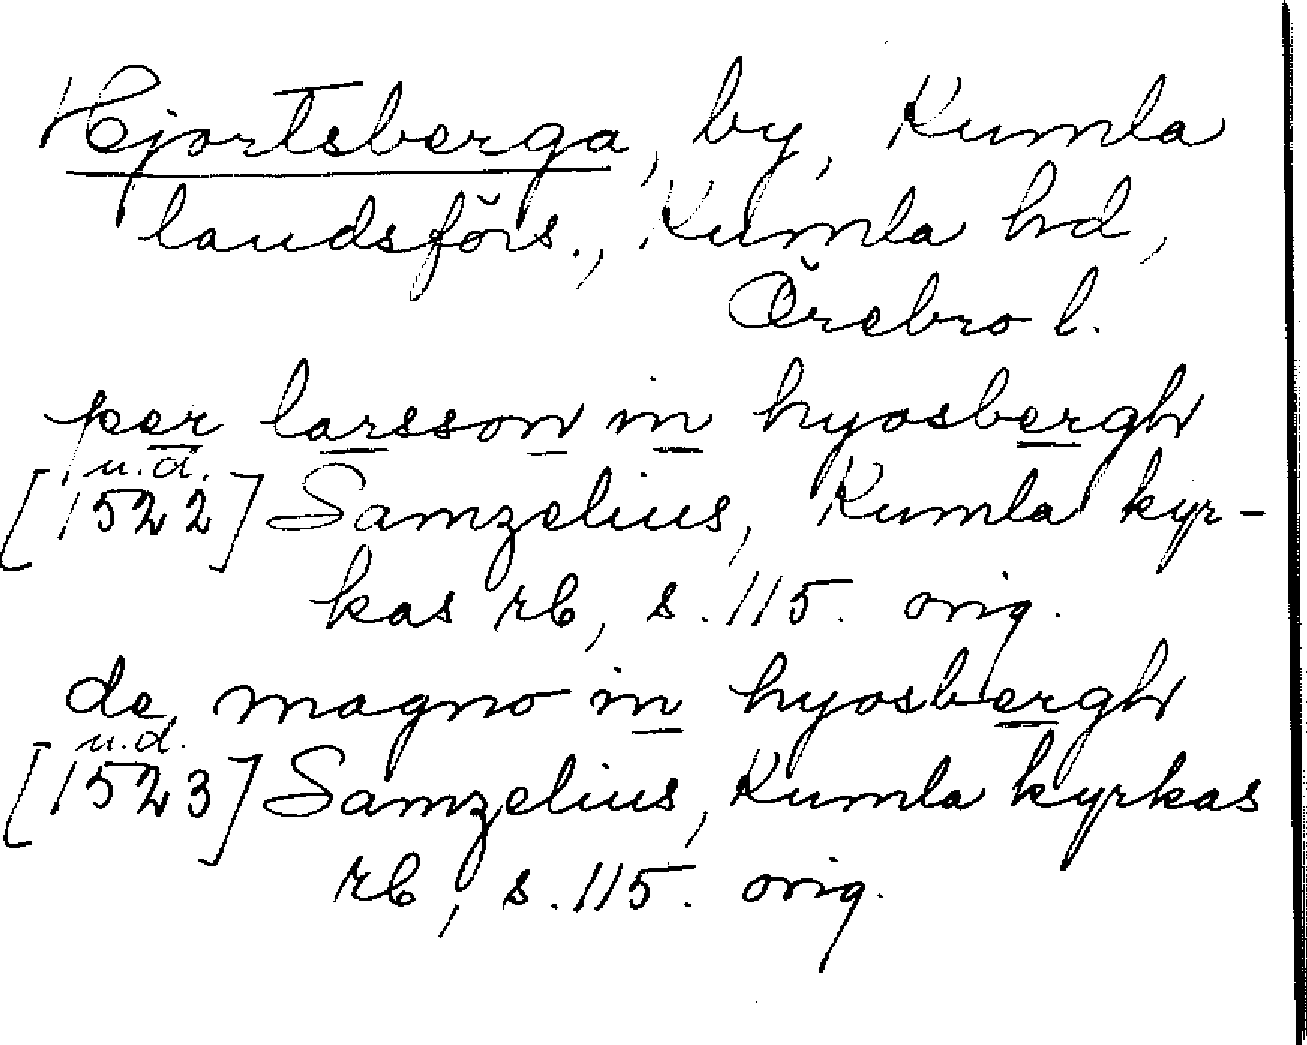 Hjortsberga, by, Kumla
landsförs., Kumla hd,
Örebro l.
per larsson in hyosbergh
u.d.
[1522] Samzelius, Kumla kyr-
kas rb, s. 115. orig.
de magno in hyosbergh
u.d.
[1523] Samzelius, Kumla kyrkas
rb, s. 115. orig.